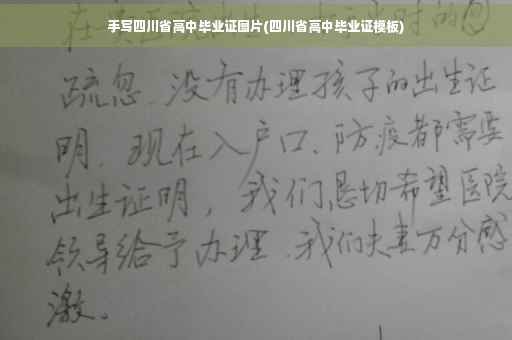 手写四川省高中毕业证图片(四川省高中毕业证模板)
疏忽、没有办理孩子的出生证
明、现在入户口、防疫都需要
出生证明，我们恳切希望医院
领导给予办理、我们夫妻万分感
激。